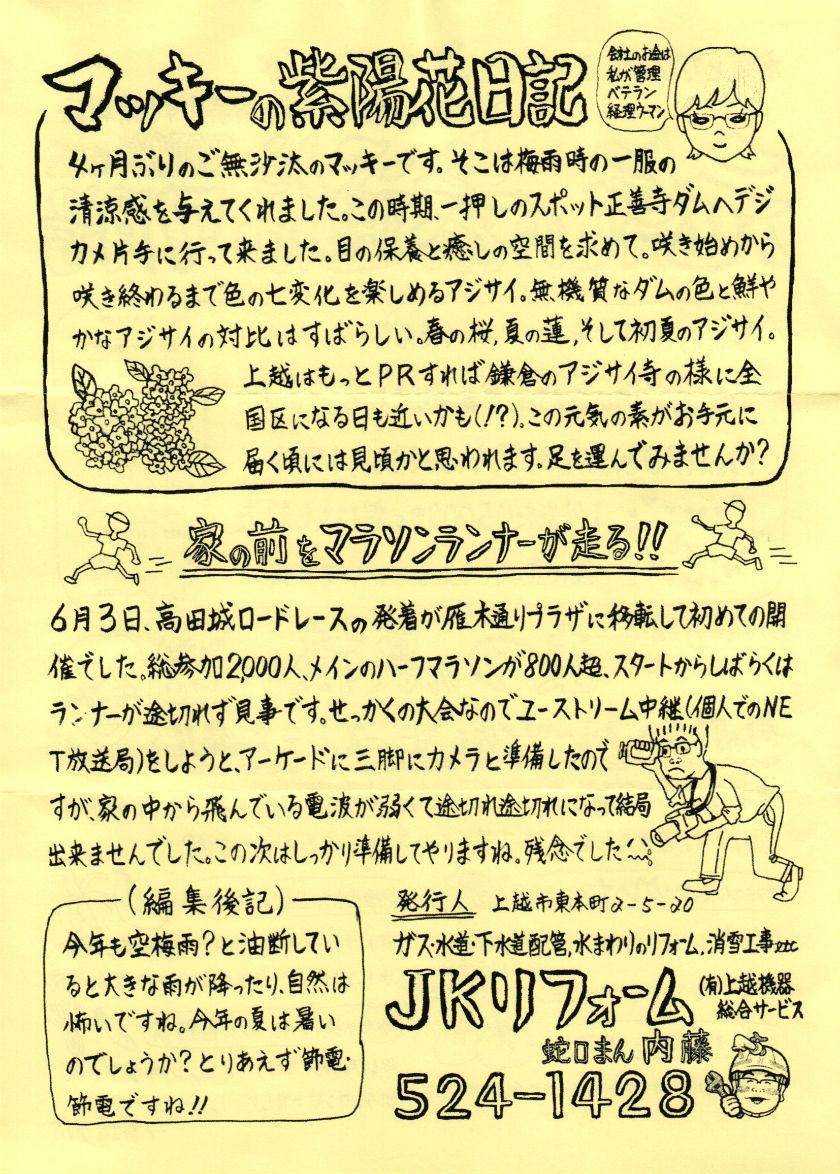 マッキーの紫陽花日記
会社のお金は
私が管理
ベテラン
経理ウーマン
4ヶ月ぶりのご無沙汰のマッキーです。そこは梅雨時の一服の
清涼感を与えてくれました。この時期、一押しのスポット正善寺ダムへデジ
カメ片手に行って来ました。目の保養と癒しの空間を求めて。咲き始めから
咲き終わるまで色の七変化を楽しめるアジサイ。無機質なダムの色と鮮や
かなアジサイの対比はすばらしい。春の桜,夏の蓮,そして初夏のアジサイ。
上越はもっとPRすれば鎌倉のアジサイ寺の様に全
国区になる日も近いかも(!?)。この元気の素がお手元に
届く頃には見頃かと思われます。足を運んでみませんか?
家の前をマラソンランナーが走る!!
6月3日、高田城ロードレースの発着が雁木通りプラザに移転して初めての開
催でした。総参加2,000人、メインのハーフマラソンが800人超、スタートからしばらくは
ランナーが途切れず見事です。せっかくの大会なのでユーストリーム中継(個人でのNE
T放送局)をしようと、アーケードに三脚にカメラと準備したので
すが、家の中から飛んでいる電波が弱くて途切れ途切れになって結局
出来ませんでした。この次はしっかり準備してやりますね。残念でした
(編集後記)
今年も空梅雨?と油断してい
ると大きな雨が降ったり、自然は
怖いですね。今年の夏は暑い
のでしょうか?とりあえず節電・
節電ですね!!
発行人 上越市東本町2-5-20
ガス・水道・下水道配管,水まわりのリフォーム,消雪工事etc
JKリフォーム
(有)上越機器
総合サービス
蛇口まん 内藤
524-1428